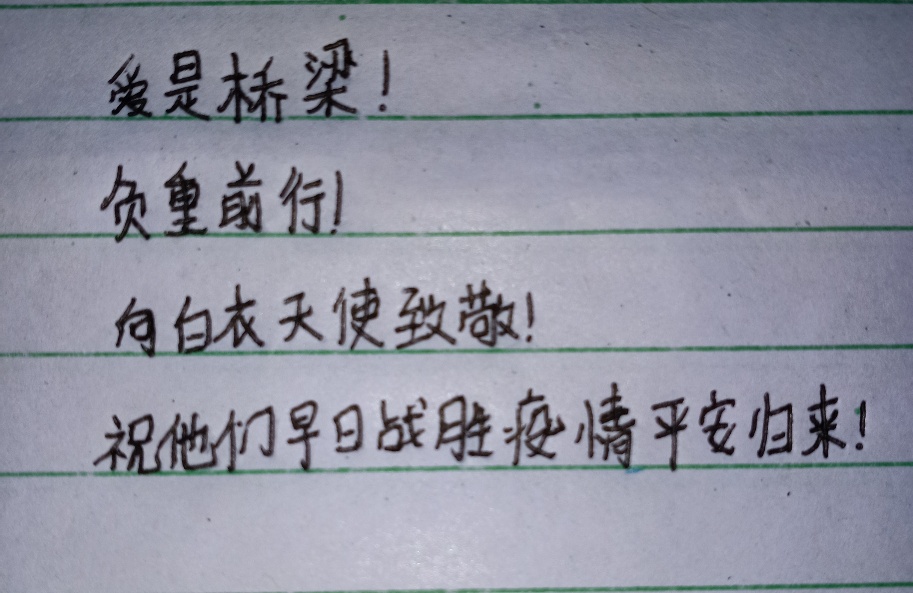 爱是桥梁！
负重前行！
向白衣天使致敬！
祝他们早日战胜疫情平安归来！